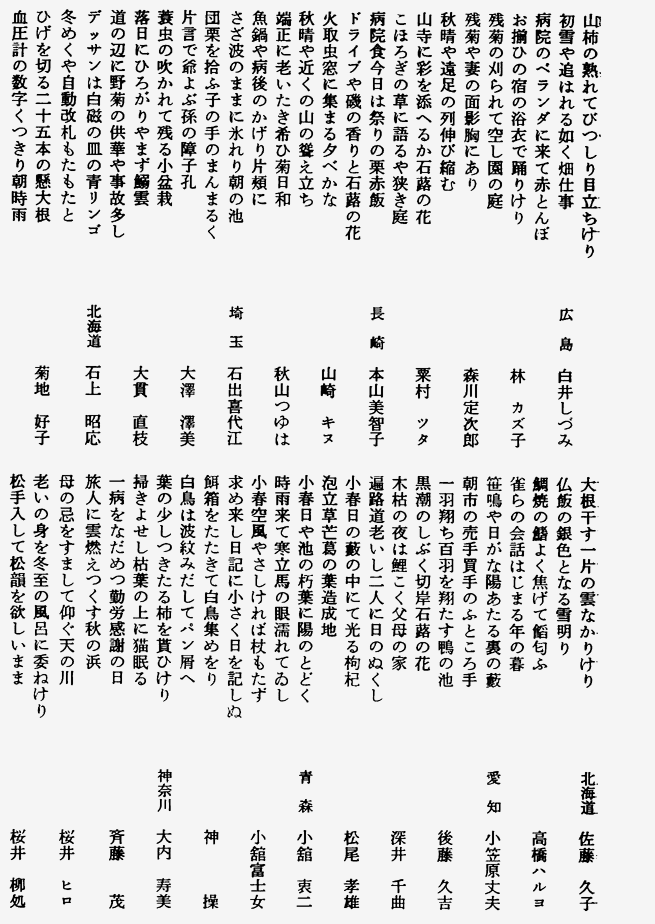 山柿の熟れてびつしり目立ちけり
初雪や追はれる如く畑仕事　広島　白井しづみ
病院のベランダに来て赤とんぼ
お揃ひの宿の浴衣で踊りけり　林　カズ子
残菊の刈られて空し園の庭
残菊や妻の面影胸にあり　森川定次郎
秋晴や遠足の列伸び縮む
山寺に彩を添へるか石蕗の花　粟村　ツタ
こほろぎの草に語るや狭き庭
病院食今日は祭りの栗赤飯　長崎　本山美智子
ドライブや磯の香りと石蕗の花
火取虫窓に集まる夕べかな　山崎　キヌ
秋晴や近くの山の聳え立ち
端正に老いたき希ひ菊日和　秋山つゆは
魚鍋や病後のかげり片頬に
さざ波のままに氷れり朝の池　埼玉　石出喜代江
団栗を拾ふ子の手のまんまるく
片言で爺よぶ孫の障子孔　大澤　澤美
蓑虫の吹かれて残る小盆栽
落日にひろがりやまず鰯雲　大貫　直枝
道の辺に野菊の供華や事故多し
デッサンは白磁の皿の青リンゴ　北海道　石上　昭応
冬めくや自動改札もたもたと
ひげを切る二十五本の懸大根　菊地　好子
血圧計の数字くつきり朝時雨
大根干す一片の雲なかりけり　北海道　佐藤　久子
仏飯の銀色となる雪明り
鯛焼の鰭よく焦げて餡匂ふ　高橋ハルヨ
雀らの会話はじまる年の暮
笹鳴や日がな陽あたる裏の藪　愛知　小笠原丈夫
朝市の売手買手のふところ手
一羽翔ち百羽を翔たす鴨の池　後藤　久吉
黒潮のしぶく切岸石蕗の花
木枯の夜は鯉こく父母の家　深井　千曲
遍路道老いし二人に日のぬくし
小春日の藪の中にて光る枸杞　松尾　孝雄
泡立草芒葛の葉造成地
小春日や池の朽葉に陽のとどく　青森　小舘　衷二
時雨来て寒立馬の眼濡れてゐし
小春空風やさしければ杖もたず　小舘富士女
求め来し日記に小さく日を記しぬ
餌箱をたたきて白鳥集めをり　神　操
白鳥は波紋みだしてパン屑へ
葉の少しつきたる柿を貰ひけり　神奈川　大内　寿美
掃きよせし枯葉の上に猫眠る
一病をなだめつ勤労感謝の日　斉藤　茂
旅人に雲燃えつくす秋の浜
母の忌をすまして仰ぐ天の川　桜井　ヒロ
老いの身を冬至の風呂に委ねけり
松手入して松韻を欲しいまま　桜井　柳処